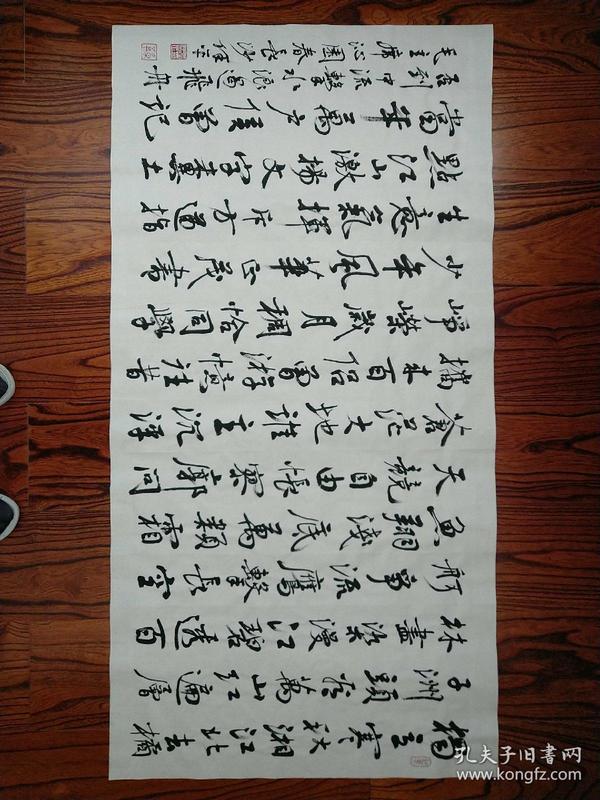 獨立寒秋湘江北去橘
子洲頭看萬山紅遍層
林盡染漫江碧透百
舸爭流鷹擊長空
魚翔淺底萬類霜
天競自由悵寥廓問
蒼茫大地誰主沉浮
攜來百侣曾游憶往昔
崢嶸歲月稠恰同學
少年風華正茂書
生意氣揮斥方遒指
點江山激揚文字糞土
當年萬户侯曾記
否到中流擊水浪遏飛舟
毛主席沁園春長沙
孔夫子旧书网
www.kongfz.com